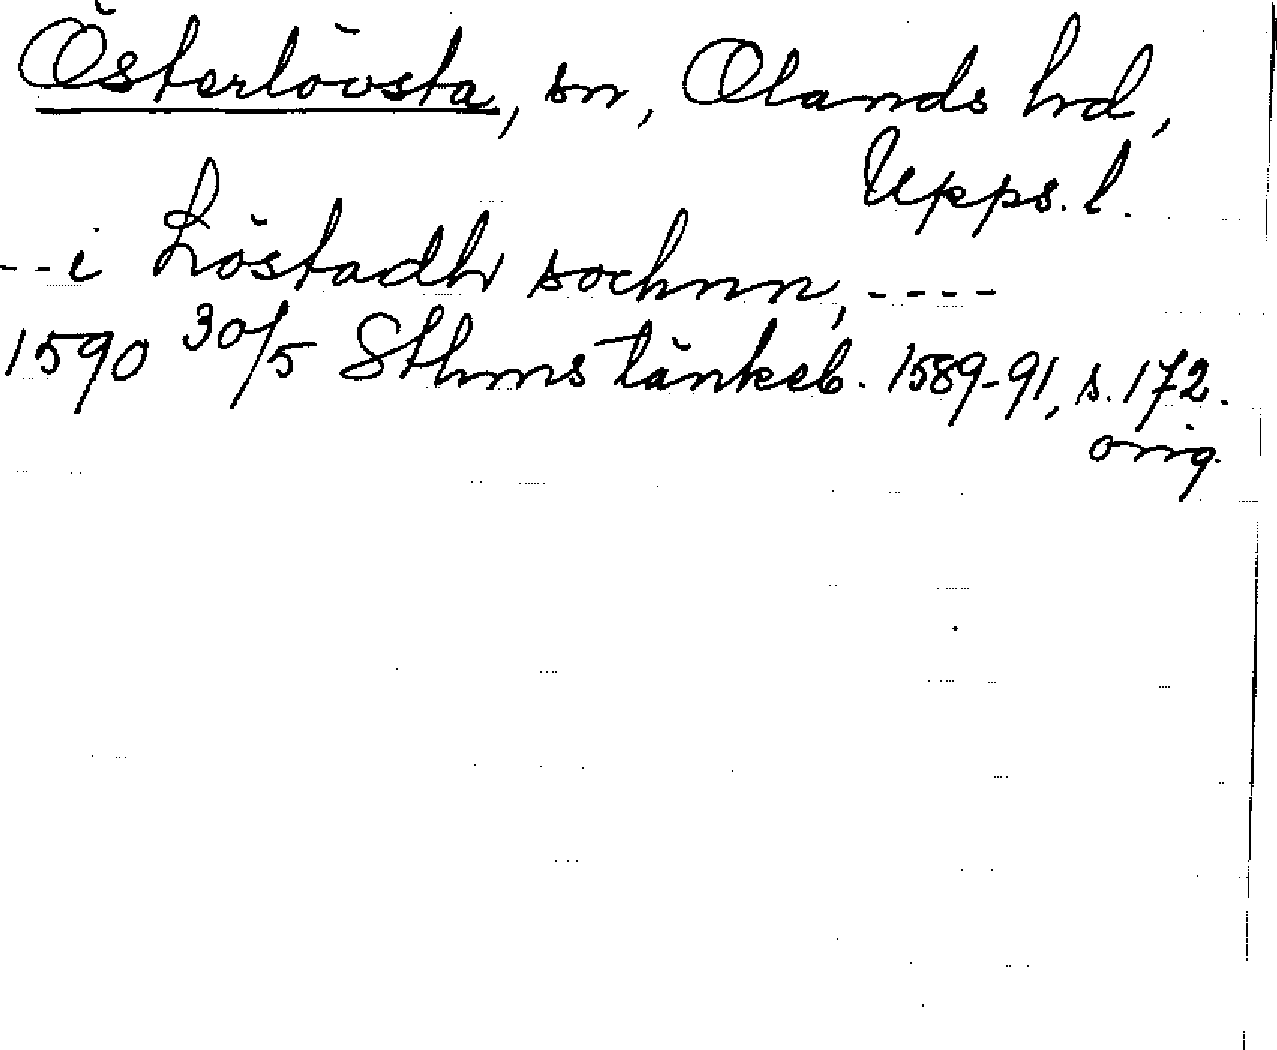 Österlövsta, sn, Olands hd,
Upps. l.
--i Löstadh sochnn, ----
1590 30/5 Sthms tänkeb. 1589-91, s. 172.
orig.